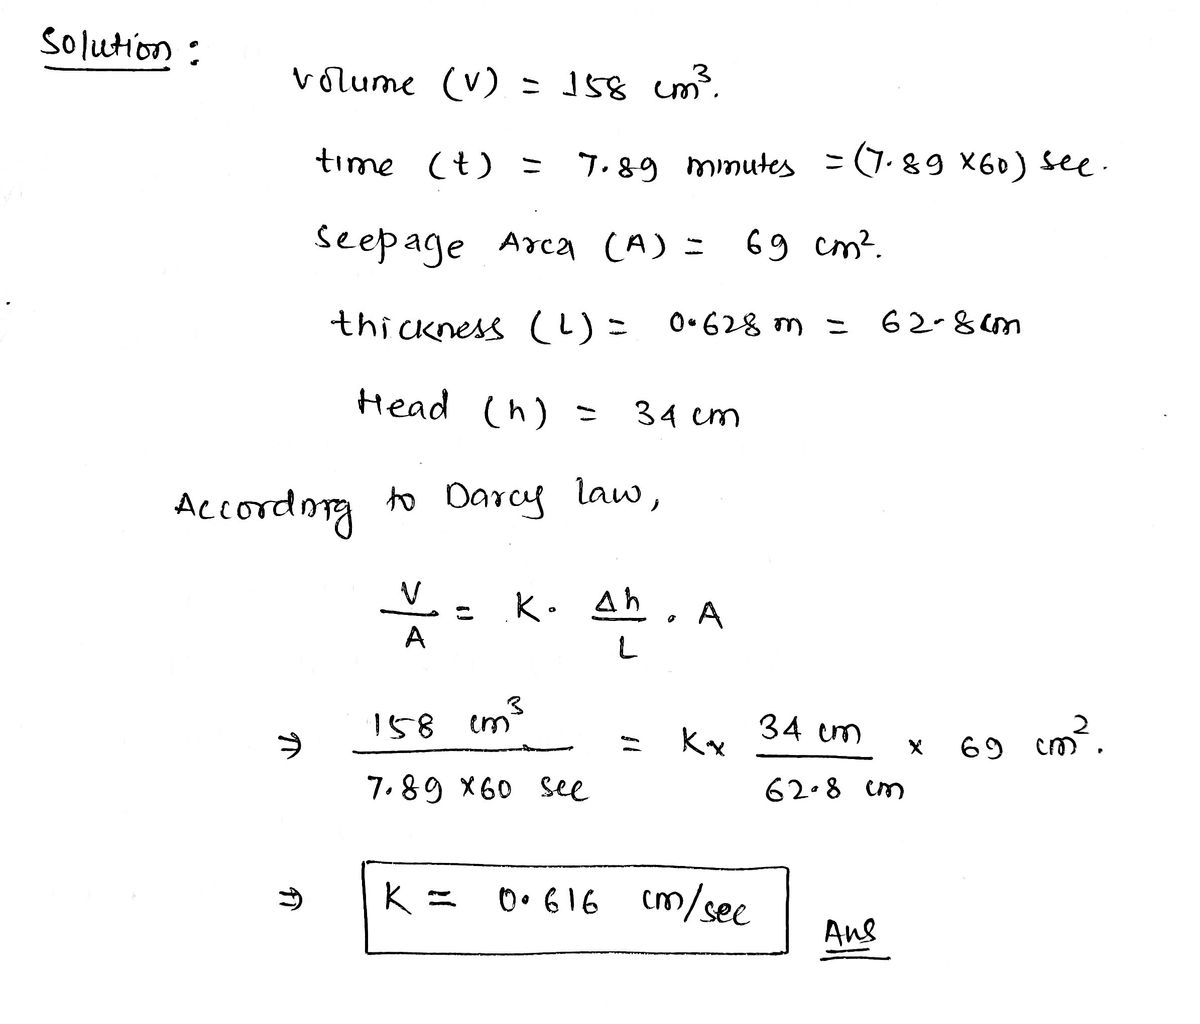 Solution :
Volume (V) = 158 cm³.
time (t) = 7.89 minutes = (7.89 ×60) sec.
Seepage Area (A) = 69 cm².
thickness (L) = 0.628 m = 62.8 cm
Head (h) = 34 cm
According to Darcy law,
V/A = K. Δh/L . A
⇒ 158 cm³ / 7.89 ×60 sec = K× 34 cm / 62.8 cm × 69 cm².
⇒ K = 0.616 cm/sec Ans